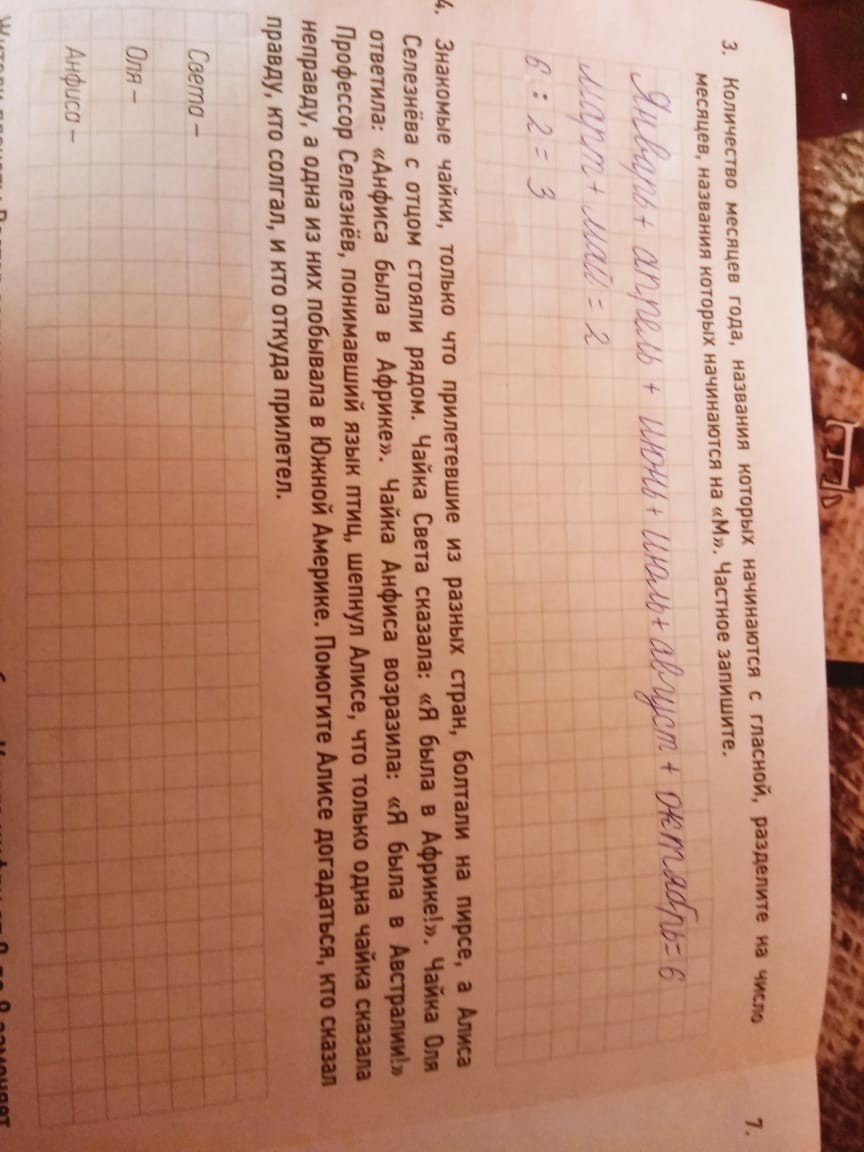 3. Количество месяцев года, названия которых начинаются с гласной, разделите на число
месяцев, названия которых начинаются на «М». Частное запишите.
Январь + апрель + июнь + июль + август + октябрь = 6
март + май = 2
6 : 2 = 3
4. Знакомые чайки, только что прилетевшие из разных стран, болтали на пирсе, а Алиса
Селезнёва с отцом стояли рядом. Чайка Света сказала: «Я была в Африке!». Чайка Оля
ответила: «Анфиса была в Африке». Чайка Анфиса возразила: «Я была в Австралии!»
Профессор Селезнёв, понимавший язык птиц, шепнул Алисе, что только одна чайка сказала
неправду, а одна из них побывала в Южной Америке. Помогите Алисе догадаться, кто сказал
правду, кто солгал, и кто откуда прилетел.
Света –
Оля –
Анфиса –
7.